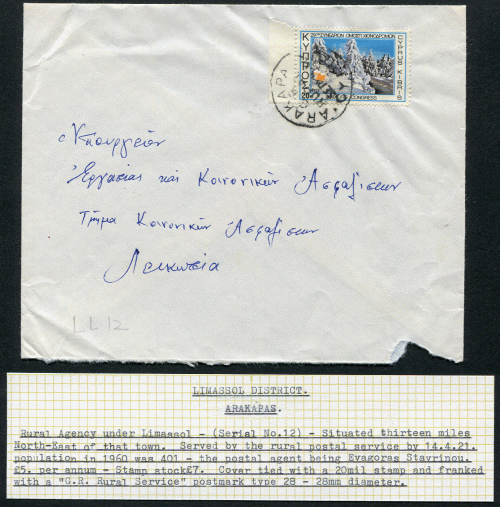 29ον ΣΥΝΕΔΡΙΟΝ ΟΜΟΣΠ. ΧΙΟΝΟΔΡΟΜΩΝ
ΚΥΠΡΟΣ
CYPRUS KIBRIS
20
CONGRESS
ARAKAPA
Υπουργείον
Εργασίας και Κοινονικών Ασφαλίσεων
Τμήμα Κοινονικών Ασφαλίσεων
Λευκωσία
LL 12
LIMASSOL DISTRICT.
ARAKAPAS.
Rural Agency under Limassol - (Serial No.12) - Situated thirteen miles
North-East of that town. Served by the rural postal service by 14.4.21.
population in 1960 was 401 - the postal agent being Evagoras Stavrinou.
£5. per annum - Stamp stock£7. Cover tied with a 20mil stamp and franked
with a "G.R. Rural Service" postmark type 28 - 28mm diameter.